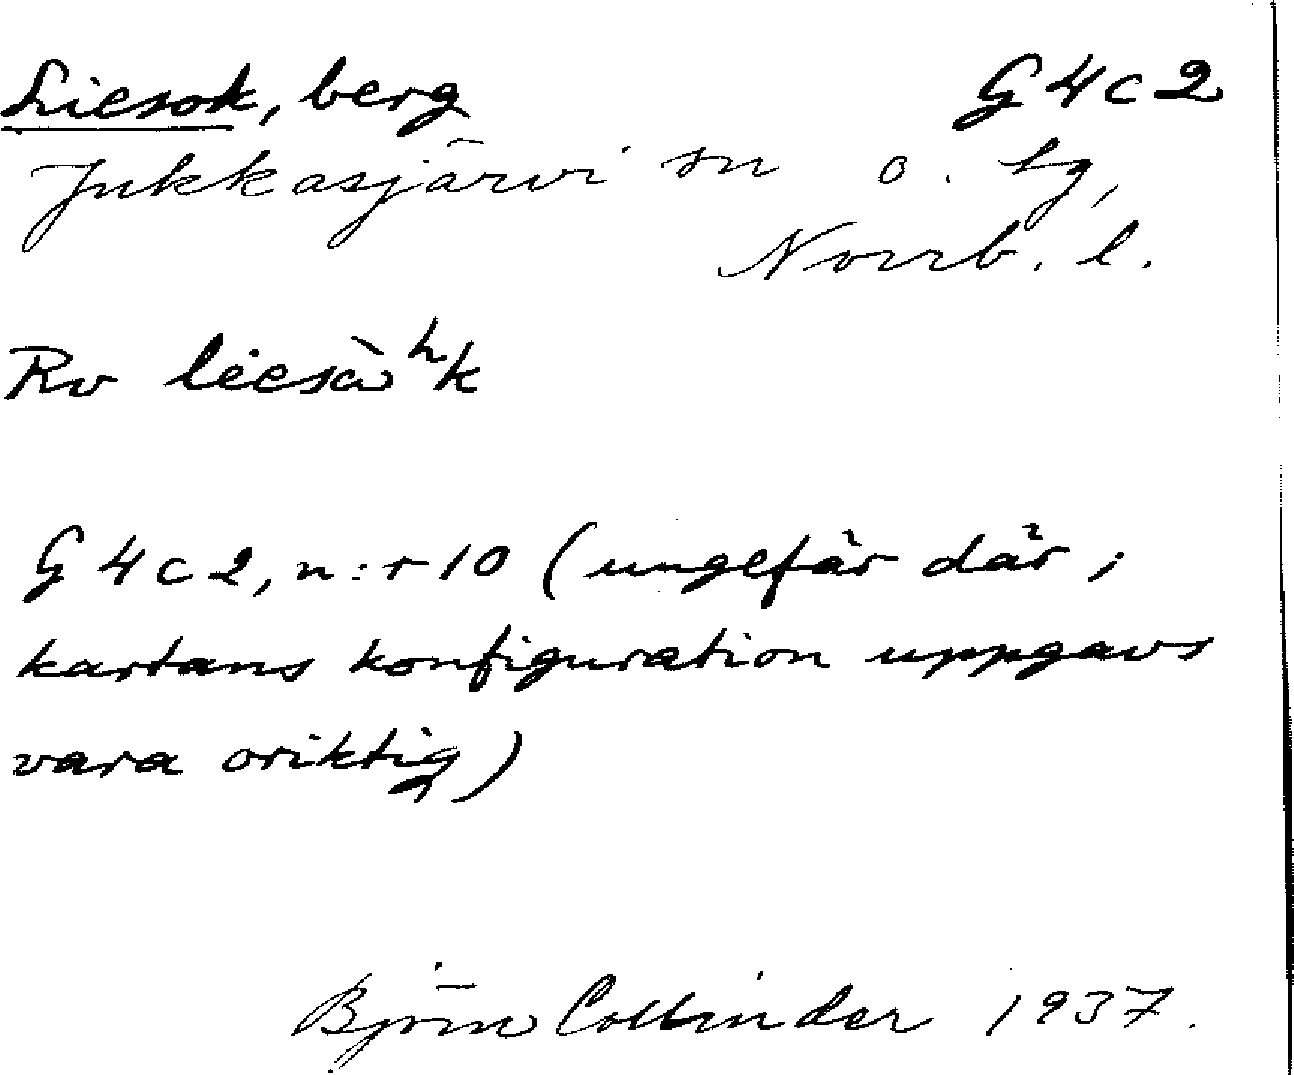 Liesok, berg G4c2
Jukkasjärvi sn o. lg,
Norrb. l.
Rv liesàʰk
G4c2, n:r 10 (ungefär där;
kartans konfiguration uppgavs
vara oriktig)
Björn Collinder 1937.